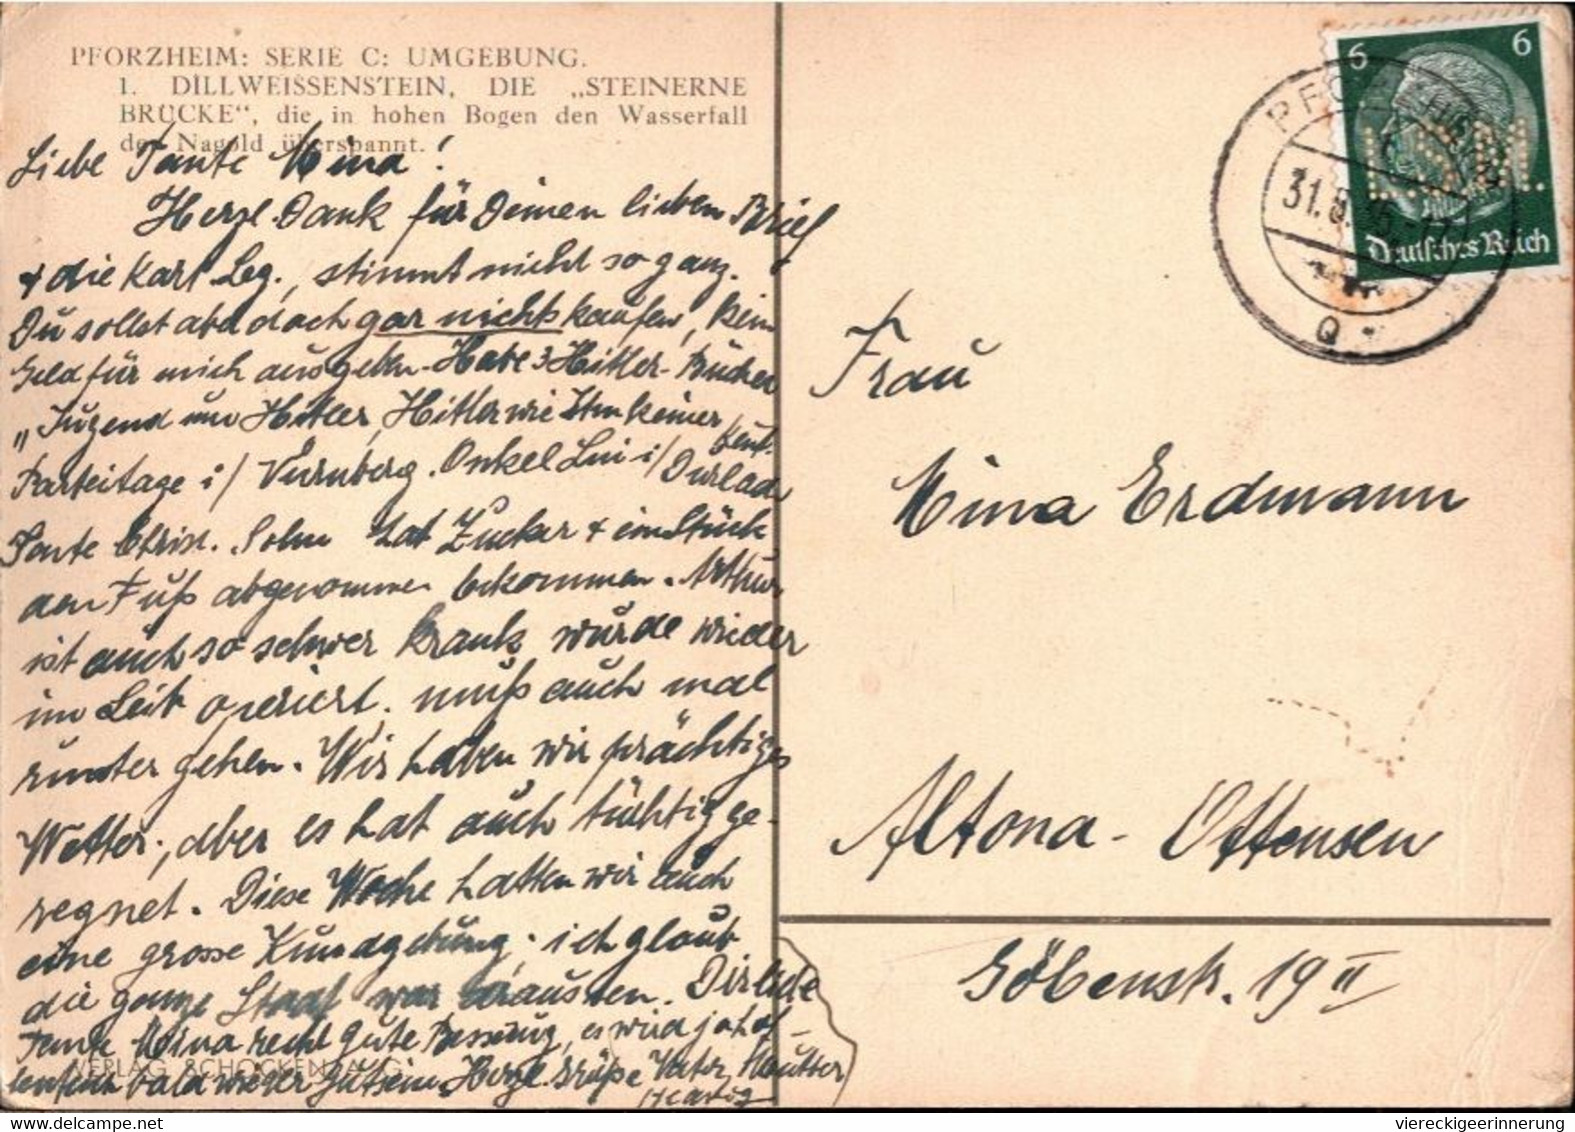 PFORZHEIM: SERIE C: UMGEBUNG.
1. DILLWEISSENSTEIN, DIE „STEINERNE
BRÜCKE“, die in hohen Bogen den Wasserfall
der Nagold überspannt.
Liebe Tante Mina!
Herzl. Dank für Deinen lieben Brief
+ die Kart. Leg., stimmt nicht so ganz.
Du sollst aba doch gar nichts kaufen, kein
Geld für mich ausgeben. Habe 3 Hitler-Bücher
„Jugend um Hitler, Hitler wie Ihn keiner kennt.
Parteitage i/ Nürnberg. Onkel i/ Durlach
Tante Christ. Sohn hat Zucker + ein Stück
den Fuß abgenommen bekommen. Arthur
ist auch so schwer krank, wurde wieder
im Leib operiert. muß auch mal
runter gehen. Wir haben wir prächtiges
Wetter, aber es hat auch tüchtig ge-
regnet. Diese Woche hatten wir auch
eine grosse Kundgebung, ich glaub
die ganze Stadt war draussen. Dir liebe
Tante Mina recht gute Besserung, es wird ja hof-
fentlich bald wieder gut sein. Herzl. Grüße Vater, Mutter
Hedwig
VERLAG SCHOCKEN A.G.
6 6
Deutsches Reich
PFORZHEIM
31.8.35
Frau
Mina Erdmann
Altona-Ottensen
Göbenstr. 19 II
viereckigeerinnerung